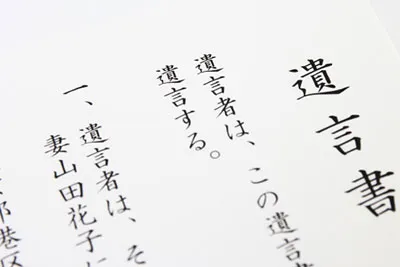 遺言書
遺言者は、この遺言書
遺言する。
一、遺言者は、そ
妻山田花子に
都港区